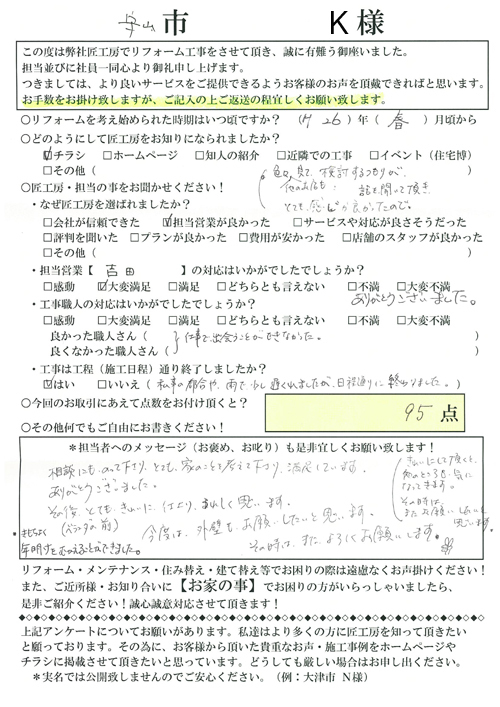 守山市 K様
この度は弊社匠工房でリフォーム工事をさせて頂き、誠に有難う御座いました。
担当並びに社員一同心より御礼申し上げます。
つきましては、より良いサービスをご提供できるようお客様のお声を頂戴できればと思います。
お手数をお掛け致しますが、ご記入の上ご返送の程宜しくお願い致します。
○リフォームを考え始められた時期はいつ頃ですか？（H26）年（春）月頃から
○どのようにして匠工房をお知りになられましたか？
☑チラシ □ホームページ □知人の紹介 □近隣での工事 □イベント（住宅博）
□その他（ ）
○匠工房・担当の事をお聞かせください！
色々見て、検討するつもりが、
他のお店も 話を聞って頂き、
とても感じが良かったので。
・なぜ匠工房を選ばれましたか？
□会社が信頼できた ☑担当営業が良かった □サービスや対応が良さそうだった
□評判を聞いた □プランが良かった □費用が安かった □店舗のスタッフが良かった
□その他（ ）
・担当営業【 吉田 】の対応はいかがでしたでしょうか？
□感動 ☑大変満足 □満足 □どちらとも言えない □不満 □大変不満
ありがとうございました。
・工事職人の対応はいかがでしたでしょうか？
□感動 □大変満足 □満足 □どちらとも言えない □不満 □大変不満
良かった職人さん（
良くなかった職人さん（
仕事で出会うことができなかった。
・工事は工程（施工日程）通り終了しましたか？
☑はい □いいえ（私事の都合や、雨で少し遅くれましたが、日程通りに終わりました。）
○今回のお取引にあえて点数をお付け頂くと？ 95 点
○その他何でもご自由にお書きください！
＊担当者へのメッセージ（お褒め、お叱り）も是非宜しくお願い致します！
相談にものって下さり、とても、家のことを考えて下さり、満足しています。
ありがとうございました。
その後、とても、きれいに仕上り、うれしく思います。
（ベランダの前）
年明けをむかえることができました。
今度は、外壁も、お願いしたいと思います。
その時は、また、よろしくお願いします。
きれいにして頂くと、
他のところも、気に
なってきます。
その時は、
またお願いしたいと
思います。
リフォーム・メンテナンス・住み替え・建て替え等でお困りの際は遠慮なくお声掛けください！
また、ご近所様・お知り合いに【お家の事】でお困りの方がいらっしゃいましたら、
是非ご紹介ください！誠心誠意対応させて頂きます！
上記アンケートについてお願いがあります。私達はより多くの方に匠工房を知って頂きたい
と願っております。その為に、お客様から頂いた貴重なお声・施工事例をホームページや
チラシに掲載させて頂きたいと思っています。どうしても厳しい場合はお申し出ください。
＊実名では公開致しませんのでご安心ください。（例：大津市 N様）